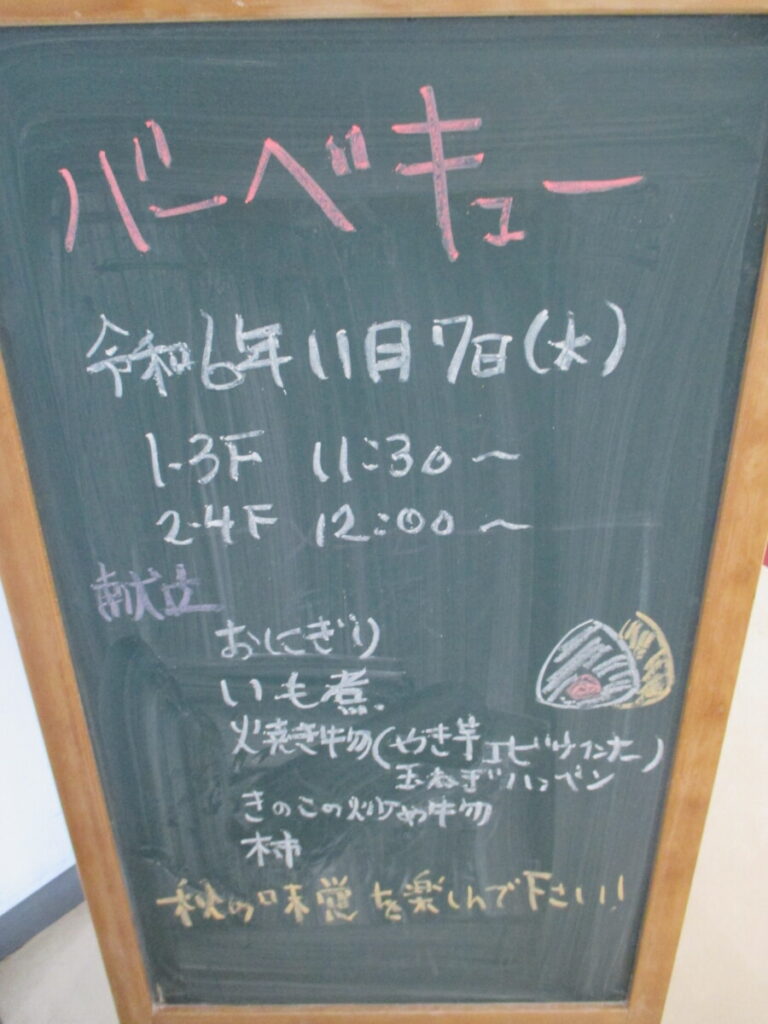 バーベキュー
令和6年11月7日(水)
1-3F 11:30～
2-4F 12:00～
献立
おにぎり
いも煮
焼き物(やき芋 エビ ウインナー)
玉ねぎ ハンペン
きのこの炒め物
柿
秋の味覚を楽しんで下さい!